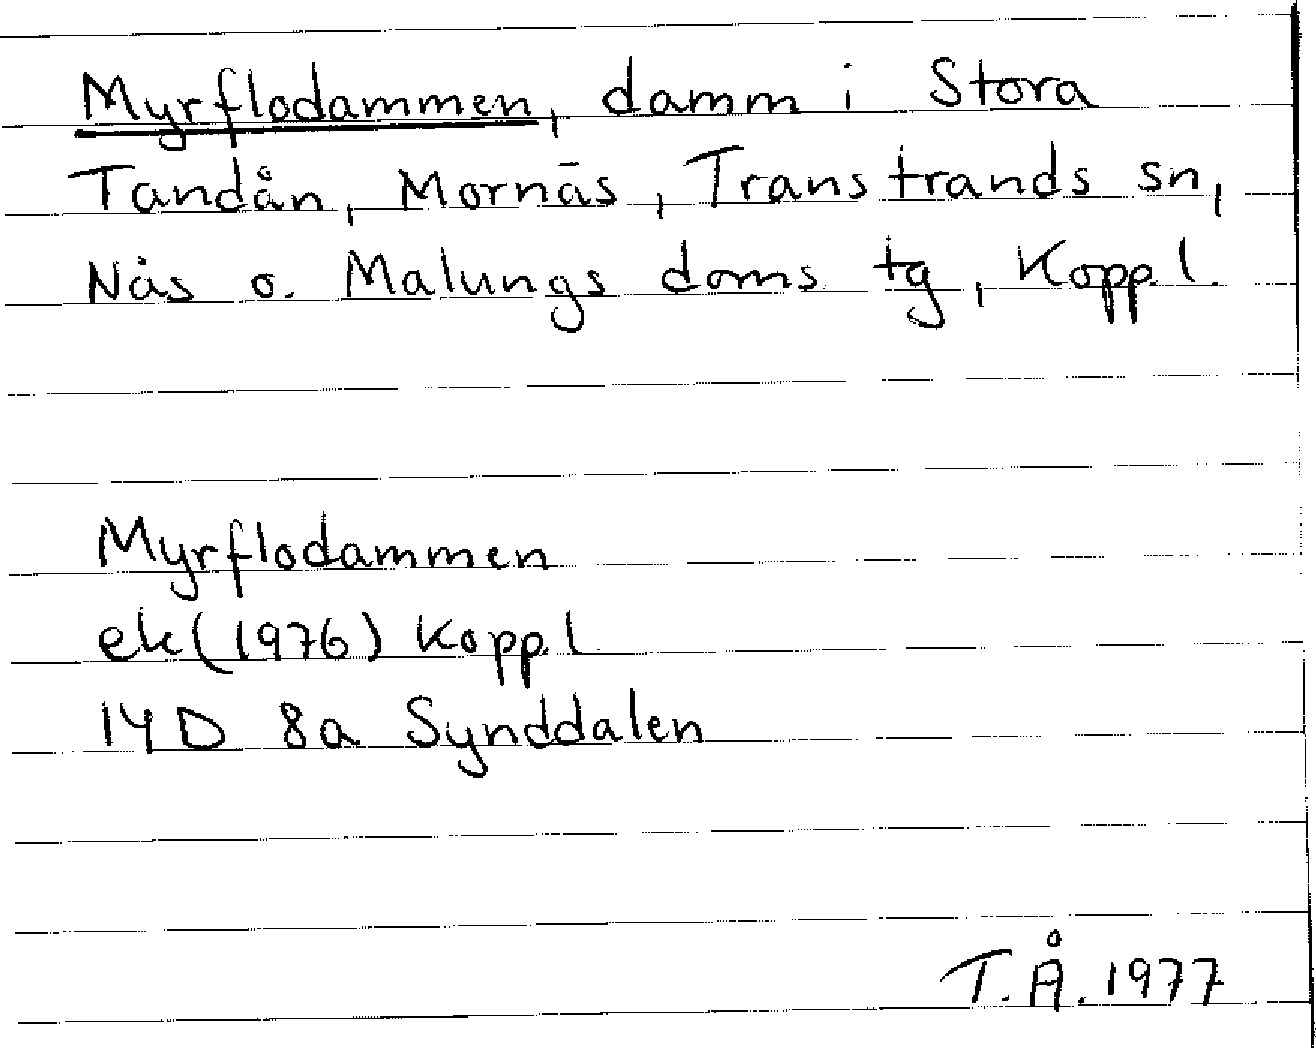 Myrflodammen, damm i Stora
Tandån, Mornäs, Transtrands sn,
Nås o. Malungs doms tg, Kopp.l.
Myrflodammen
ek (1976) Kopp.l
14 D 8a Synddalen
T.Å. 1977